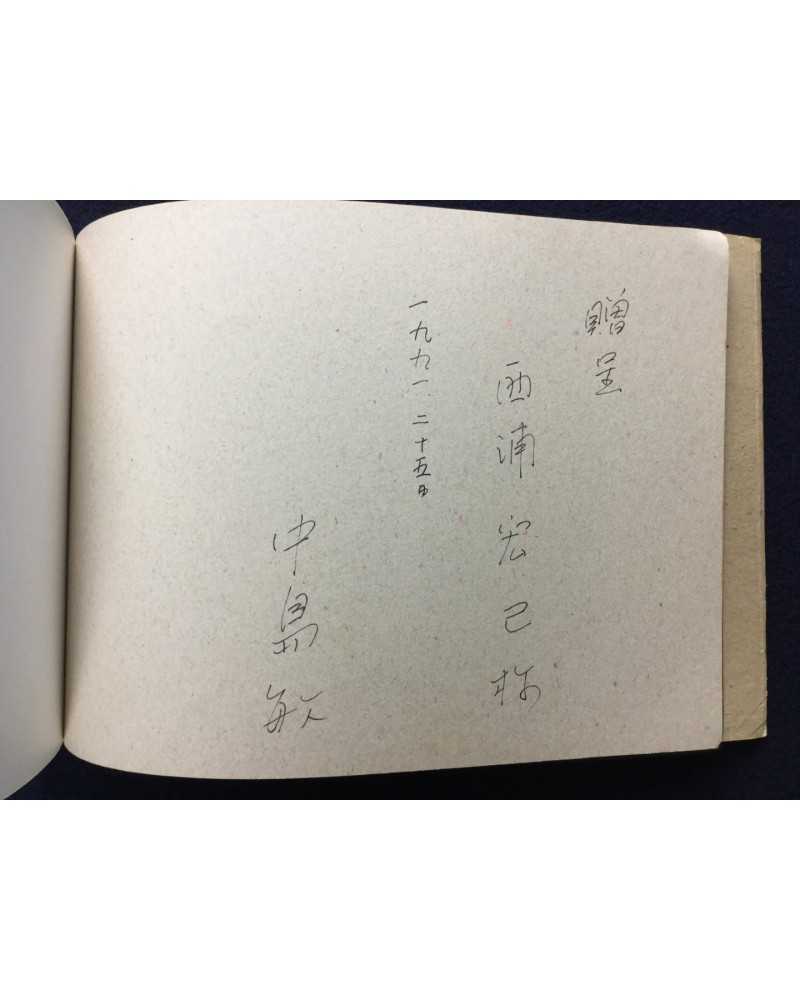 贈呈
西浦宏己様
一九九一、二十五日
中島敏